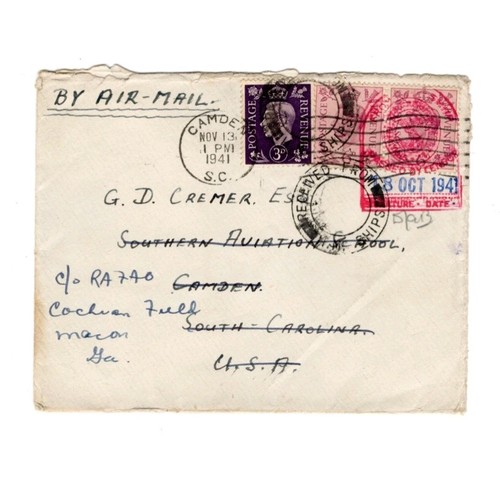 BY AIR-MAIL.
CAMDEN
NOV 13
1 PM
1941
S.C.
POSTAGE
REVENUE
3D
RECEIVED FROM
SHIPS
8 OCT 1941
DATE
G. D. CREMER, ES
SOUTHERN AVIATION SCHOOL,
CAMDEN.
SOUTH CAROLINA.
U.S.A.
c/o RAF
Cochran Field
Macon
Ga.